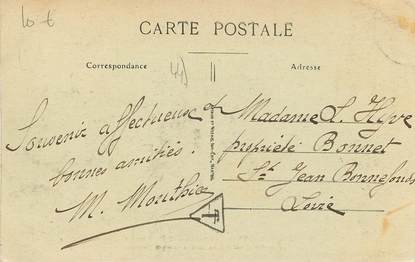 10 €
CARTE POSTALE
Correspondance
Adresse
44
Souvenir affectueux et
bonnes amitiés.
M. Mouthier
Madame L. Hyve
propriété Bonnet
St Jean Bonnefonds
Loire
T